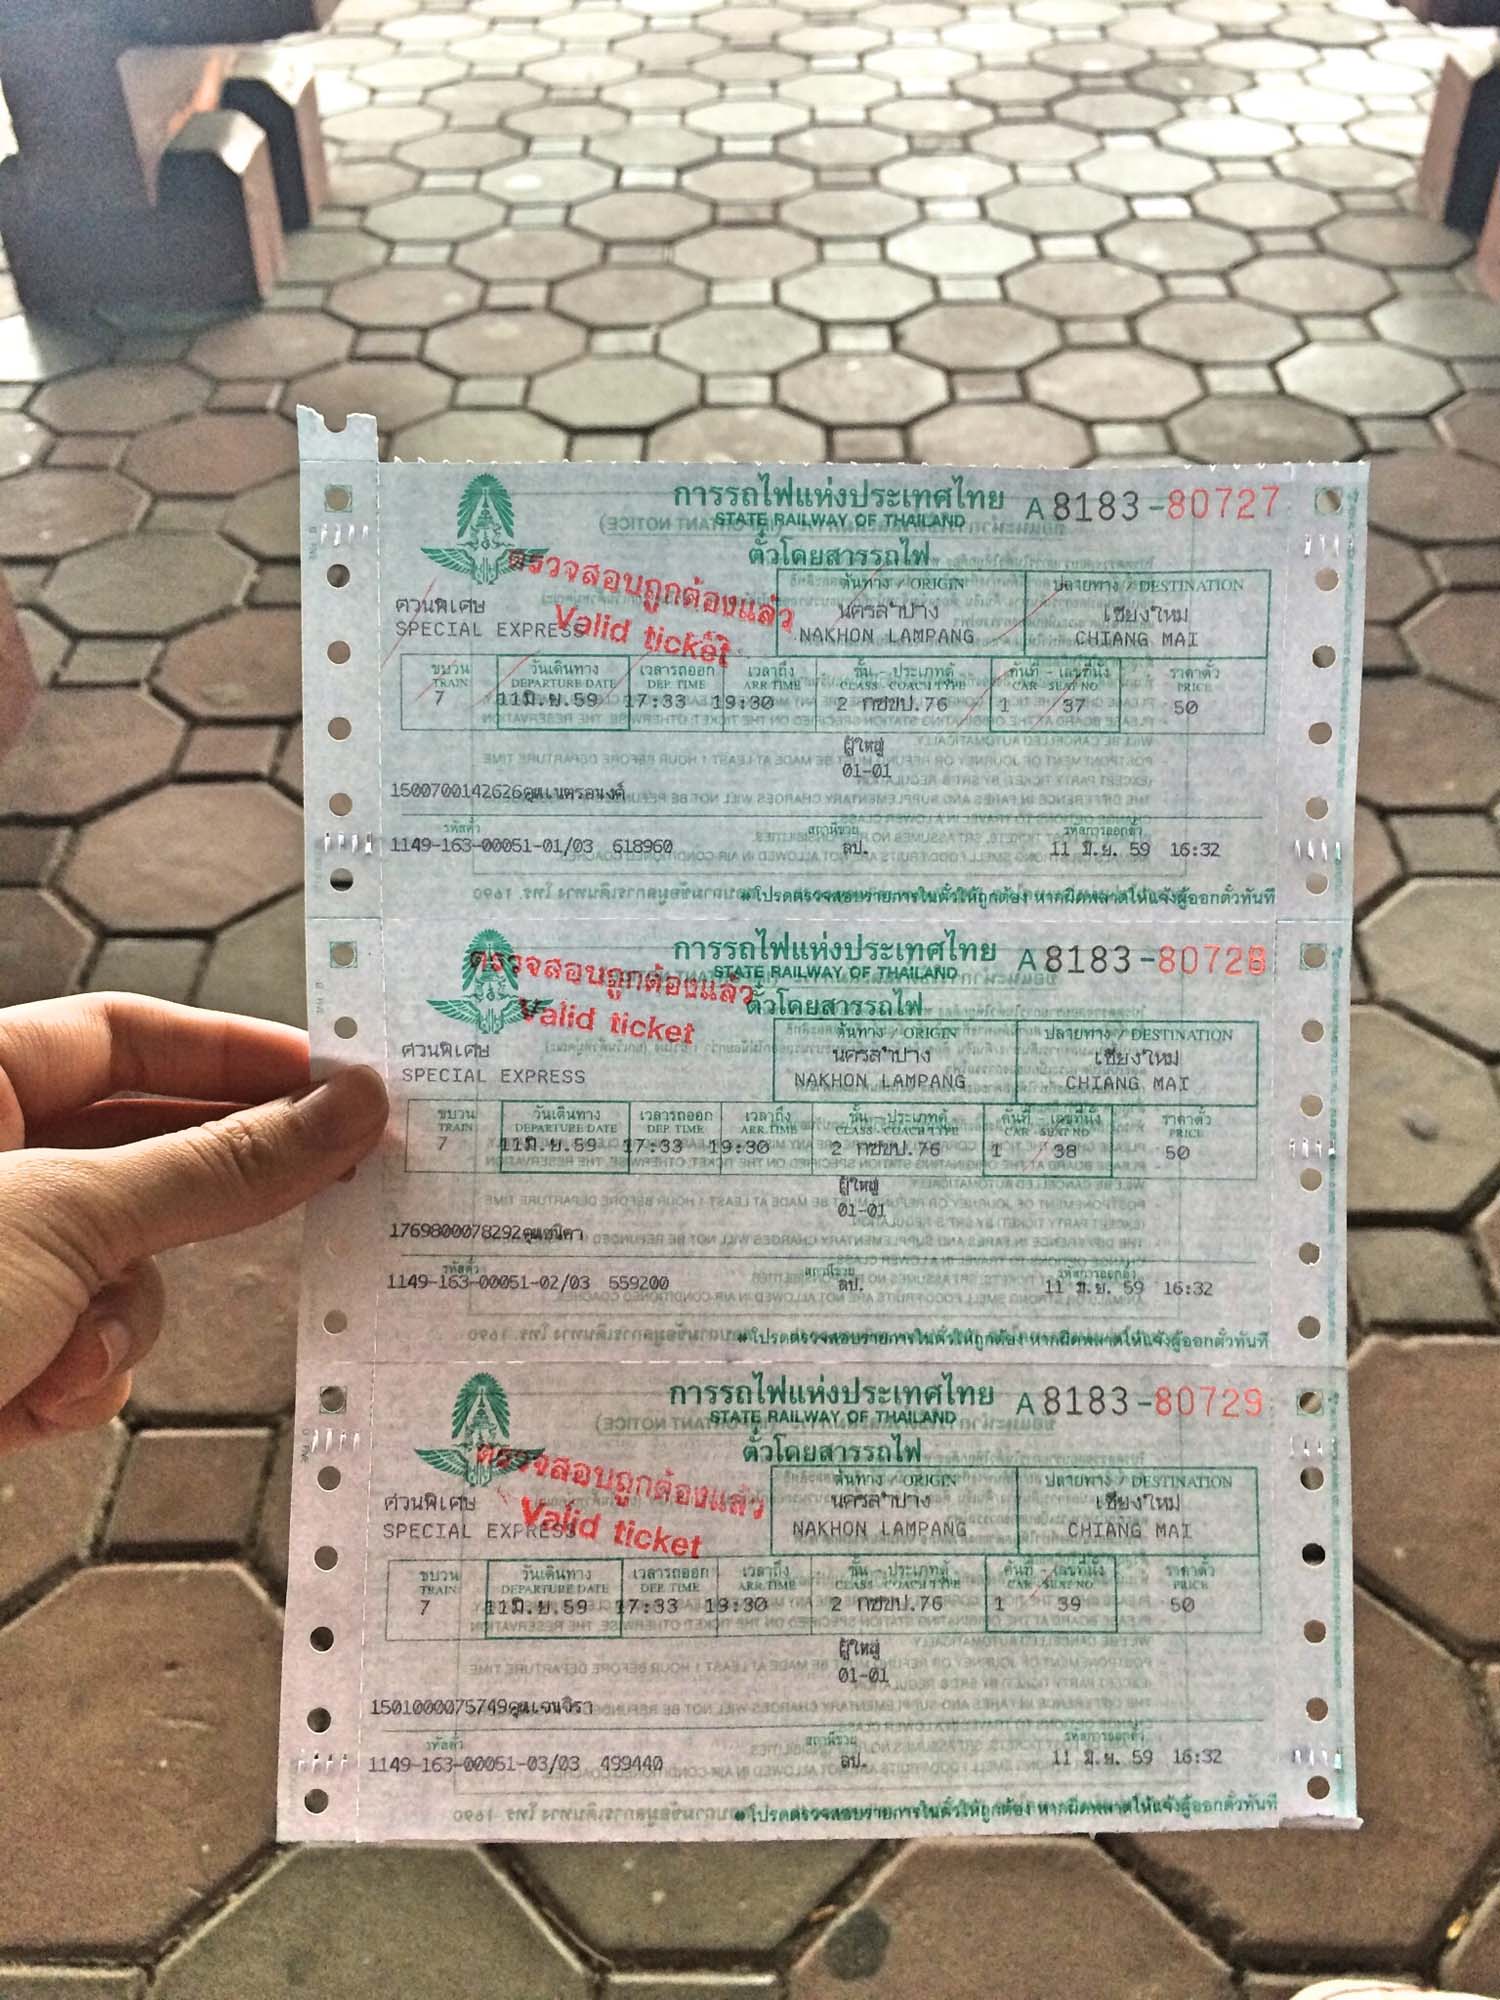 การรถไฟแห่งประเทศไทย A 8183-80727
STATE RAILWAY OF THAILAND
ตั๋วโดยสารรถไฟ
ตรวจสอบถูกต้องแล้ว
Valid ticket
ต้นทาง / ORIGIN ปลายทาง / DESTINATION
ด่วนพิเศษ นครลำปาง เชียงใหม่
SPECIAL EXPRESS NAKHON LAMPANG CHIANG MAI
ขบวน วันเดินทาง เวลารถออก เวลาถึง ชั้น - ประเภทตู้ คันที่ - เลขที่นั่ง ราคาตั๋ว
TRAIN DEPARTURE DATE DEP. TIME ARR.TIME CLASS - COACH TYPE CAR SEAT NO. PRICE
7 11 มิ.ย. 59 17:33 19:30 2 กซขป.76 1 37 50
ผู้ใหญ่
01-01
1500700142626 คุณเนตรอนงค์
รหัสตั๋ว สถานีขาย รหัสการออกตั๋ว
1149-163-00051-01/03 618960 ลป. 11 มิ.ย. 59 16:32
โปรดตรวจสอบรายการในตั๋วให้ถูกต้อง หากผิดพลาดให้แจ้งผู้ออกตั๋วทันที
การรถไฟแห่งประเทศไทย A 8183-80728
STATE RAILWAY OF THAILAND
ตั๋วโดยสารรถไฟ
ตรวจสอบถูกต้องแล้ว
Valid ticket
ต้นทาง / ORIGIN ปลายทาง / DESTINATION
ด่วนพิเศษ นครลำปาง เชียงใหม่
SPECIAL EXPRESS NAKHON LAMPANG CHIANG MAI
ขบวน วันเดินทาง เวลารถออก เวลาถึง ชั้น - ประเภทตู้ คันที่ - เลขที่นั่ง ราคาตั๋ว
TRAIN DEPARTURE DATE DEP. TIME ARR.TIME CLASS - COACH TYPE CAR SEAT NO PRICE
7 11 มิ.ย. 59 17:33 19:30 2 กซขป.76 1 38 50
ผู้ใหญ่
01-01
1769800078292
รหัสตั๋ว สถานีขาย รหัสการออกตั๋ว
1149-163-00051-02/03 559200 ลป. 11 มิ.ย. 59 16:32
โปรดตรวจสอบรายการในตั๋วให้ถูกต้อง หากผิดพลาดให้แจ้งผู้ออกตั๋วทันที
การรถไฟแห่งประเทศไทย A 8183-80729
STATE RAILWAY OF THAILAND
ตั๋วโดยสารรถไฟ
ตรวจสอบถูกต้องแล้ว
Valid ticket
ต้นทาง / ORIGIN ปลายทาง / DESTINATION
ด่วนพิเศษ นครลำปาง เชียงใหม่
SPECIAL EXPRESS NAKHON LAMPANG CHIANG MAI
ขบวน วันเดินทาง เวลารถออก เวลาถึง ชั้น - ประเภทตู้ คันที่ เลขที่นั่ง ราคาตั๋ว
TRAIN DEPARTURE DATE DEP. TIME ARR.TIME CLASS - COACH TYPE CAR SEAT NO. PRICE
7 11 มิ.ย. 59 17:33 19:30 2 กซขป.76 1 39 50
ผู้ใหญ่
01-01
1501000075749 คุณเจนจิรา
รหัสตั๋ว สถานีขาย รหัสการออกตั๋ว
1149-163-00051-03/03 499440 ลป. 11 มิ.ย. 59 16:32
โปรดตรวจสอบรายการในตั๋วให้ถูกต้อง หากผิดพลาดให้แจ้งผู้ออกตั๋วทันที